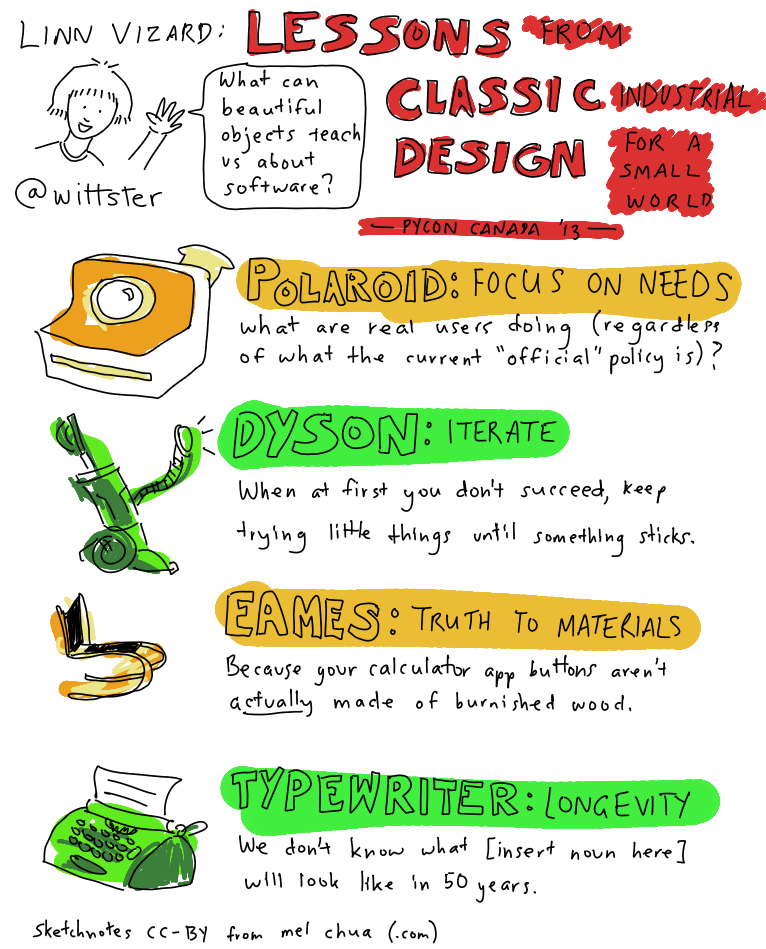 LINN VIZARD: LESSONS FROM
CLASSIC INDUSTRIAL
DESIGN FOR A
SMALL
WORLD
— PYCON CANADA '13 —
What can
beautiful
objects teach
us about
software?
@wittster
POLAROID: FOCUS ON NEEDS
what are real users doing (regardless
of what the current "official" policy is)?
DYSON: ITERATE
When at first you don't succeed, keep
trying little things until something sticks.
EAMES: TRUTH TO MATERIALS
Because your calculator app buttons aren't
actually made of burnished wood.
TYPEWRITER: LONGEVITY
We don't know what [insert noun here]
will look like in 50 years.
sketchnotes CC-BY from mel chua (.com)